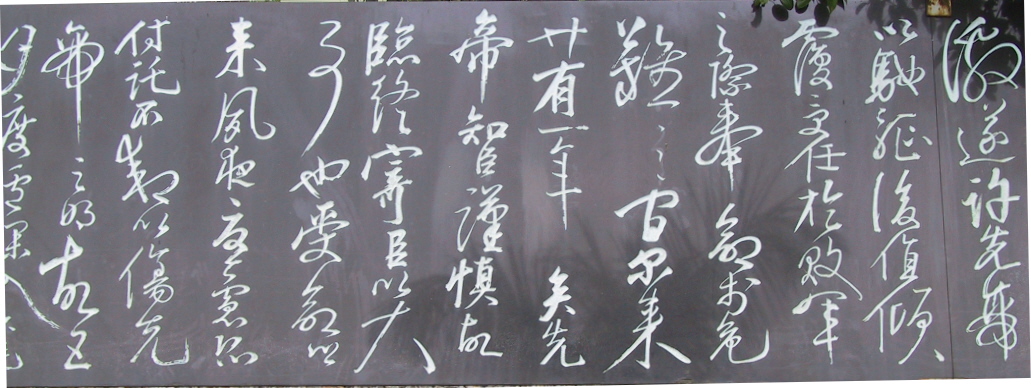 激遂許先帝
以驅馳後值傾
覆受任於敗軍
之際奉命於危
難之間尔来
廿有一年矣先
帝知臣謹慎故
臨終寄臣以大
事也受命以
来夙夜憂慮恐
付託不效以傷先
帝之明故五
月度瀘深入